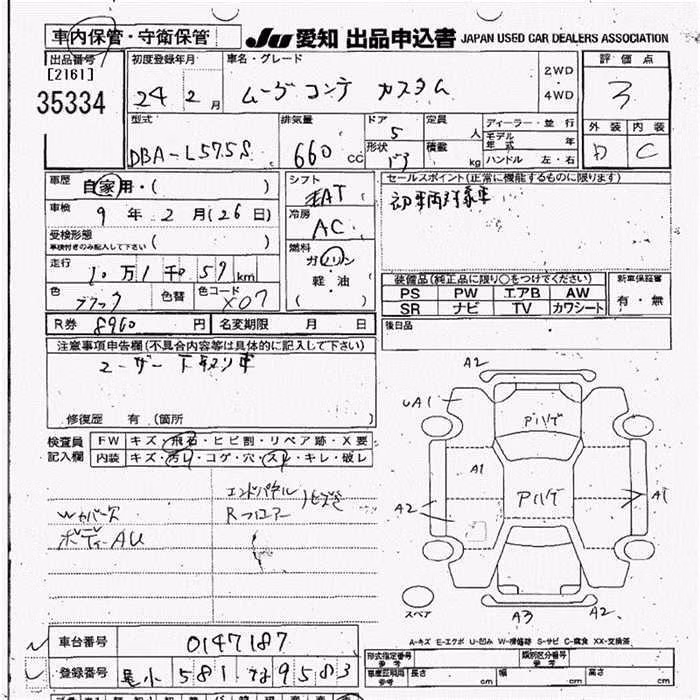 車内保管・守衛保管
JU 愛知 出品申込書 JAPAN USED CAR DEALERS ASSOCIATION
出品番号
[2161]
35334
初度登録年月
24年2月
車名・グレード
ムーヴ コンテ カスタム
2WD
・
4WD
評価点
3
外装 内装
D C
型式
DBA-L575S
排気量
660 cc
ドア
5
形状
定員
人
積載
kg
ディーラー・並行
モデル年式 年
ハンドル 左・右
車歴
自家用・( )
車検
9年2月(26日)
受検形態
車検付きのみ記入して下さい ( )
走行
10万1千057km
色
ブラック
色替
色コード
X07
シフト
AT
冷房
AC
燃料
ガソリン
・
軽・油
( )
セールスポイント(正常に機能するものに限ります)
初車両対象車
装備品(純正品に限り○をつけてください)
PS PW エアB AW
SR ナビ TV カワシート
新車保証書
有・無
R券 8960円
名変期限 月 日
後日品
注意事項申告欄(不具合内容等は具体的に記入して下さい)
ユーザー下取り車
修復歴 有 (箇所 )
検査員
記入欄
FW キズ・飛石・ヒビ割・リペア跡・X要
内装 キズ・汚レ・コゲ・穴・スレ・キレ・破レ
エンドパネル
Rフロアー
Wカバー欠
ボディーAU
A2
UA1
アハゲ
A1
アハゲ
A2
A1
スペア
A3
A2
A-キズ E-エクボ U-凹み W-補修跡 S-サビ C-腐食 XX-交換済
車台番号
0147187
登録番号
尾小 581 な 9583
形式指定番号
参考
類別区分番号
参考
車庫証明用
参考
長さ cm
幅 cm
高さ cm